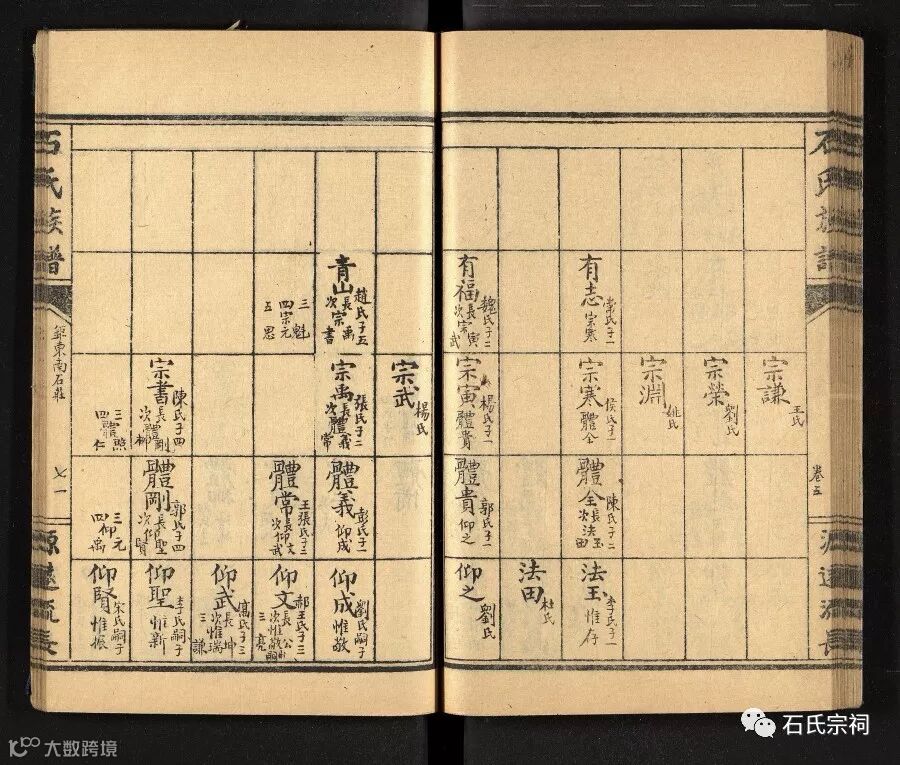 石氏族譜
卷五
源遠流長
宗謙 王氏
宗榮 劉氏
宗淵 姚氏
有志 常氏子一 宗寒
宗寒 侯氏子一 體全
體全 陳氏子二 長法玉 次法田
法玉 李氏子一 惟存
法田 杜氏
有福 魏氏子二 長宗寅 次宗武
宗寅 楊氏子一 體貴
體貴 郭氏子一 仰之
仰之 劉氏
石氏族譜
鉅東南石莊
七一
源遠流長
宗武 楊氏
青山 趙氏子五 長宗禹 次宗書
三魁 四宗元 五思
宗禹 張氏子二 長體義 次體常
體義 彭氏子一 仰成
仰成 劉氏嗣子 惟敬
體常 王張氏子二 長仰文 次仰武
仰文 郝王氏子三 次惟敬嗣 三亮
仰武 高氏子三 長坤 次惟瑞 三謙
宗書 陳氏子四 長體剛 次體柳
三體照 四仁
體剛 郭氏子四 長仰聖 次仰賢
三仰元 四禹
仰聖 李氏嗣子 惟新
仰賢 宋氏嗣子 惟振
石氏宗祠
大数跨境